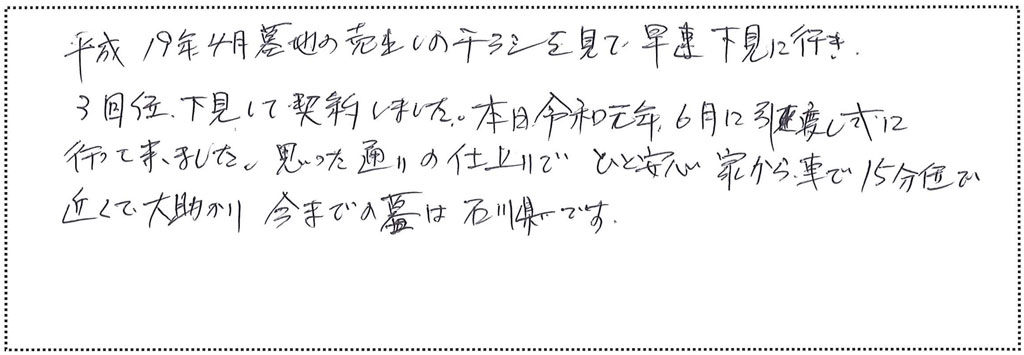 平成19年4月墓地の売出しのチラシを見て早速下見に行き.
3回位、下見して契約しました。本日、令和元年、6月に引渡し式に
行って来ました。思った通りの仕上りでひと安心 家から、車で15分位で
近くて大助かり 今までの墓は石川県です.